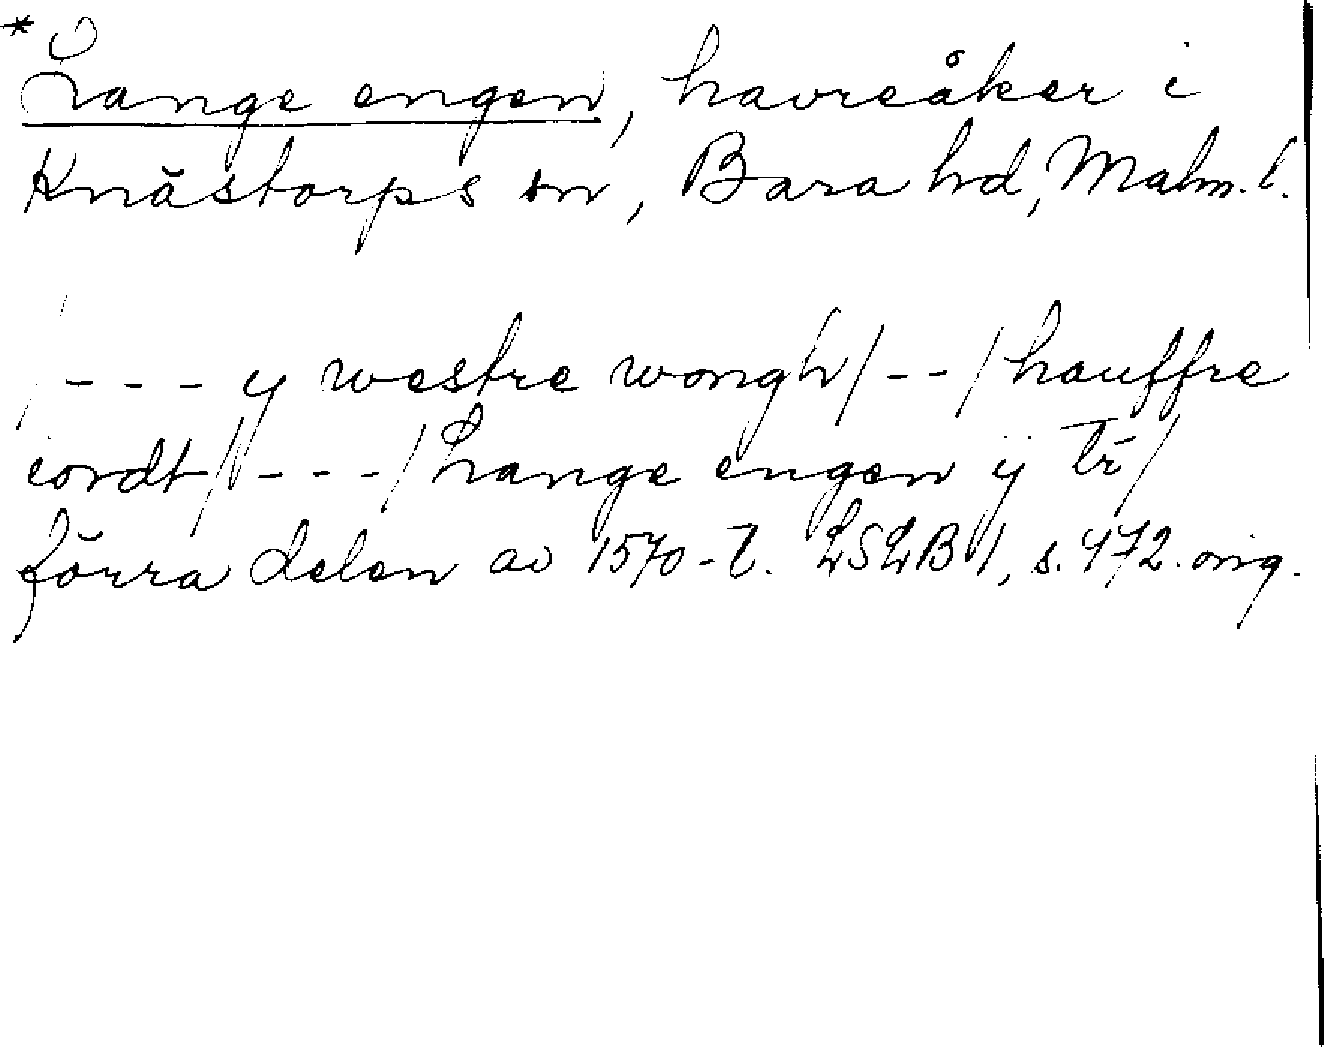 *Lange engen, havreåker i
Knästorps sn, Bara hd, Malm. l.
/--- y westre wongh/--/hauffre
iordt/---/Lange engen ÿ tr/
förra delen av 1570-t. LSLB 1, s. 472. orig.